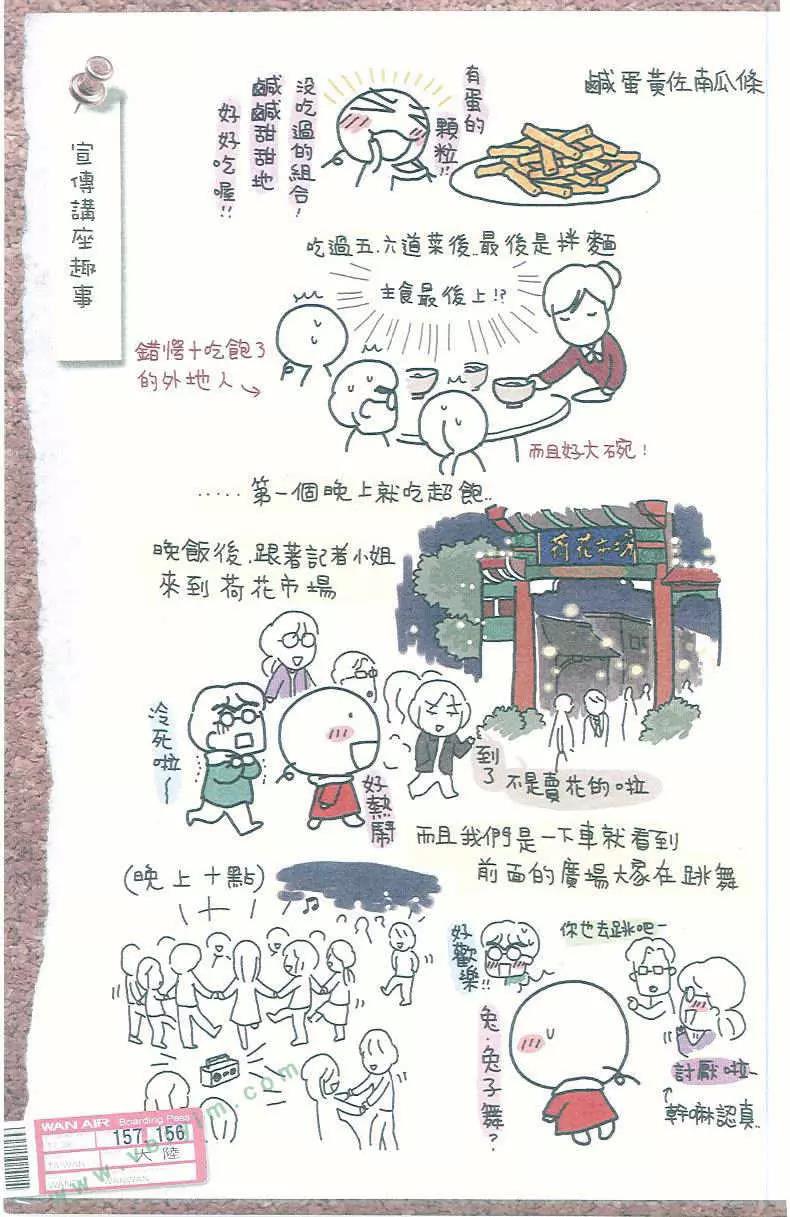 宣傳講座趣事
鹹蛋黃佐南瓜條
有蛋的
顆粒!!
沒吃過的組合!
鹹鹹甜甜地
好好吃喔!!
吃過五.六道菜後..最後是拌麵
主食最後上!?
錯愕+吃飽了
的外地人
而且好大碗!
.....第一個晚上就吃超飽..
晚飯後.跟著記者小姐
來到荷花市場
荷花市場
冷死啦~
好熱鬧
到了
不是賣花的啦
而且我們是一下車就看到
前面的廣場大家在跳舞
(晚上十點)
好歡樂!!
你也去跳吧-
兔.兔子舞?
討厭啦~
幹嘛認真..
WAN AIR Boarding Pass
157 156
TAIWAN
大陸
WANWAN